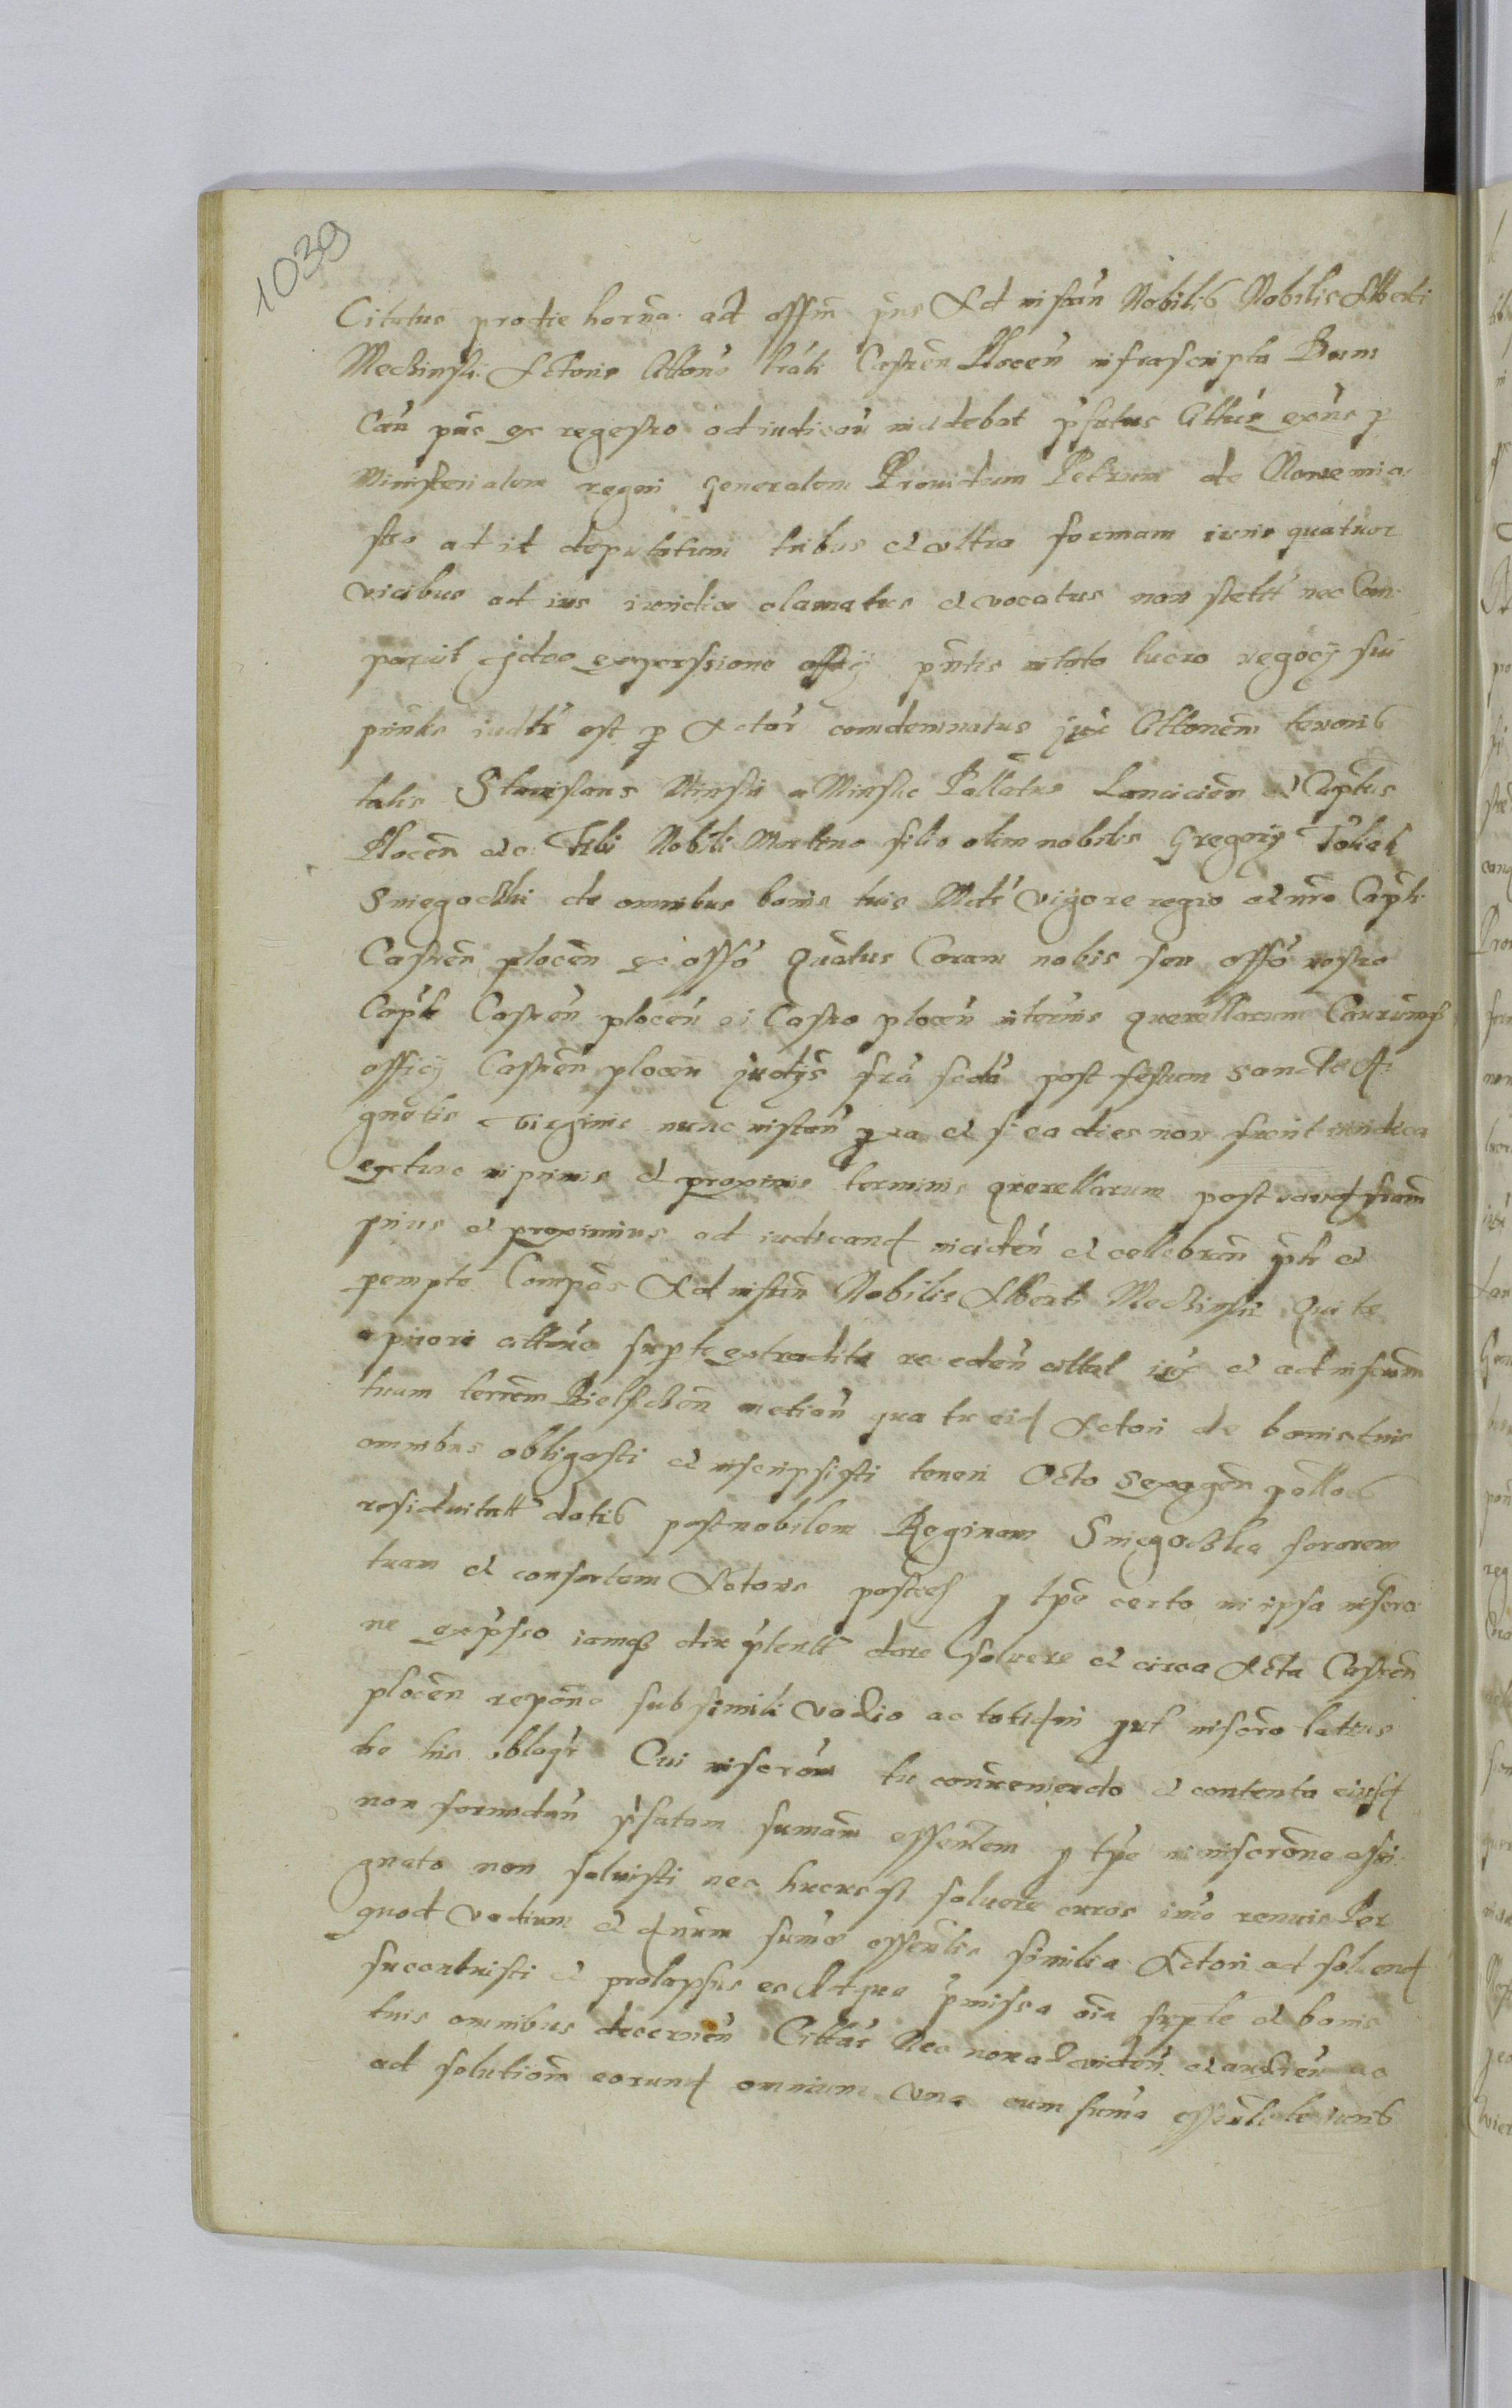 1039
Citatus pro die horna ad offm pns Ad instan Nobilis Nobilis Alberti
Mechinski Actoris Citone trali Castren Plocen infrascripta Dum
Can pns ex regestro ad iudicari incidebat pfatus Cittus exns p
Ministerialem regni Generalem Providum Petrum de Nowemia
sto ad id deputatum tribus et ultra formam iuris quatuor
vicibus ad ius iuridice clamatus et vocatus non stetit nec Com
paruit Ideo ex officij pntis in toto lucro negocij sui
pnntis iudtr est p Actore comdemnatus jux Cittonem tenoris
talis Stanislaus Minski a Minsko Pallatus Lancicien et Captus
Plocen etc Tibi Nobili Martino filio olim nobilis Gregorij
Sniegoczki de omnibus bonis tuis Mdt vigore regio et nro Capli
Castren plocen ex offo Quatus Coram nobis seu offo nostro
Capli Castren plocen in Castro plocen in terminis querellarum Caurumq
officij Castren plocen judijs fra scda post festum sancte A
gnetis virginis nunc instan pxa et si ea dies non fuerit iuridica
extunc in primis et proximis terminis querellarum post eand fram
prius et proximius ad iudicand inciden et cellebran ptr et
pempte Compas Ad instan Nobilis Alberti Mechinski Qui te
a priori cittone supte extradita receden cittat jux et ad inscrom
tuam terrem Bielscen qua tu eid Actori de bonis tuis
omnibus obligasti et inscripsisti teneri Octo sexagen pollo
residuitatt dotis post nobilem Reginam Sniegoczka sororem
tuam et consortem Actoris postea p tpe certo in ipsa inscro
ne expsso iamq diu pteritt dare solvere et circa Acta Castren
plocen repone sub simili vadio ac totidem put inscro latius
de his obloqr Cui inscroni tu contraveniendo et contenta eiusd
non formidan pfatam sumam essentem p tpe in inscrone assi
gnato non solvisti nec hucusq solvere curas imo renuis Per
quod vadium et dnum sume essentis similia Actori ad solvend
sucanbuisti et prolapsus es Ad que pmissa oia supte et bonis
tuis omnibus decernen Cittat Nec non ad viden et audien ac
ad solutiom eorund omnium una cum suma essentiale iuris